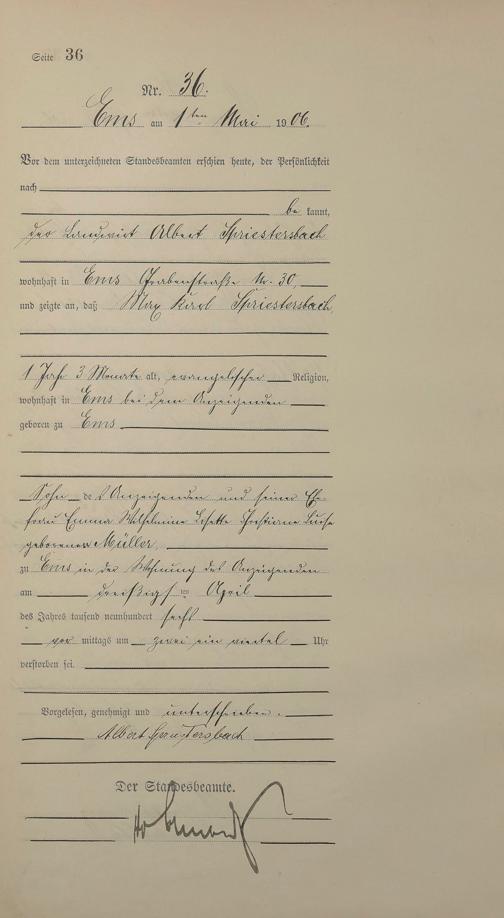 Seite 36
Nr. 36.
Ems am 1ten Mai 1906.
Vor dem unterzeichneten Standesbeamten erschien heute, der Persönlichkeit
nach
be kannt,
der Landwirt Albert Spriestersbach
wohnhaft in Ems Grabenstraße Nr. 30,
und zeigte an, daß Max Karl Spriestersbach,
1 Jahr 3 Monate alt, evangelischer Religion,
wohnhaft in Ems bei dem Anzeigenden
geboren zu Ems
Sohn des Anzeigenden und seiner Ehe-
frau Emma Wilhelmine Lisette Christiane Luise
geborenen Müller,
zu Ems in der Wohnung des Anzeigenden
am dreißigsten April
des Jahres tausend neunhundert sechs
vor mittags um zwei ein viertel Uhr
verstorben sei.
Vorgelesen, genehmigt und unterschrieben.
Albert Spriestersbach
Der Standesbeamte.